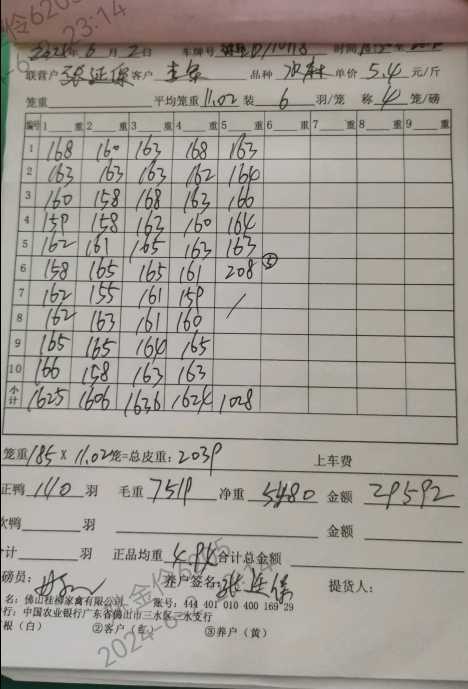 2024年6月2日 车牌号 时间
联营户 张延保 客户 品种 单价 5.4 元/斤
笼重 平均笼重 11.02 装 6 羽/笼 称 4 笼/磅
编号 1 重 2 重 3 重 4 重 5 重 6 重 7 重 8 重 9
1 168 160 163 168 163
2 163 163 163 162 164
3 160 158 168 163 166
4 159 158 163 160 164
5 162 161 165 163 163
6 158 165 165 161 208 ⑤
7 162 155 161 159 /
8 162 163 161 160
9 165 165 164 165
10 166 158 163 163
小计 1625 1606 1636 1624 1028
笼重 185 X 11.02 笼=总皮重: 2039 上车费
正鸭 1110 羽 毛重 7519 净重 5480 金额 29592
次鸭 羽 金额
合计 羽 正品均重 4.94 合计总金额
磅员: 养户签名: 张延保 提货人:
名: 佛山桂柳家禽有限公司 账号: 444 401 010 400 169 29
行: 中国农业银行广东省佛山市三水区三水支行
根（白） ②客户（红） ③养户（黄）